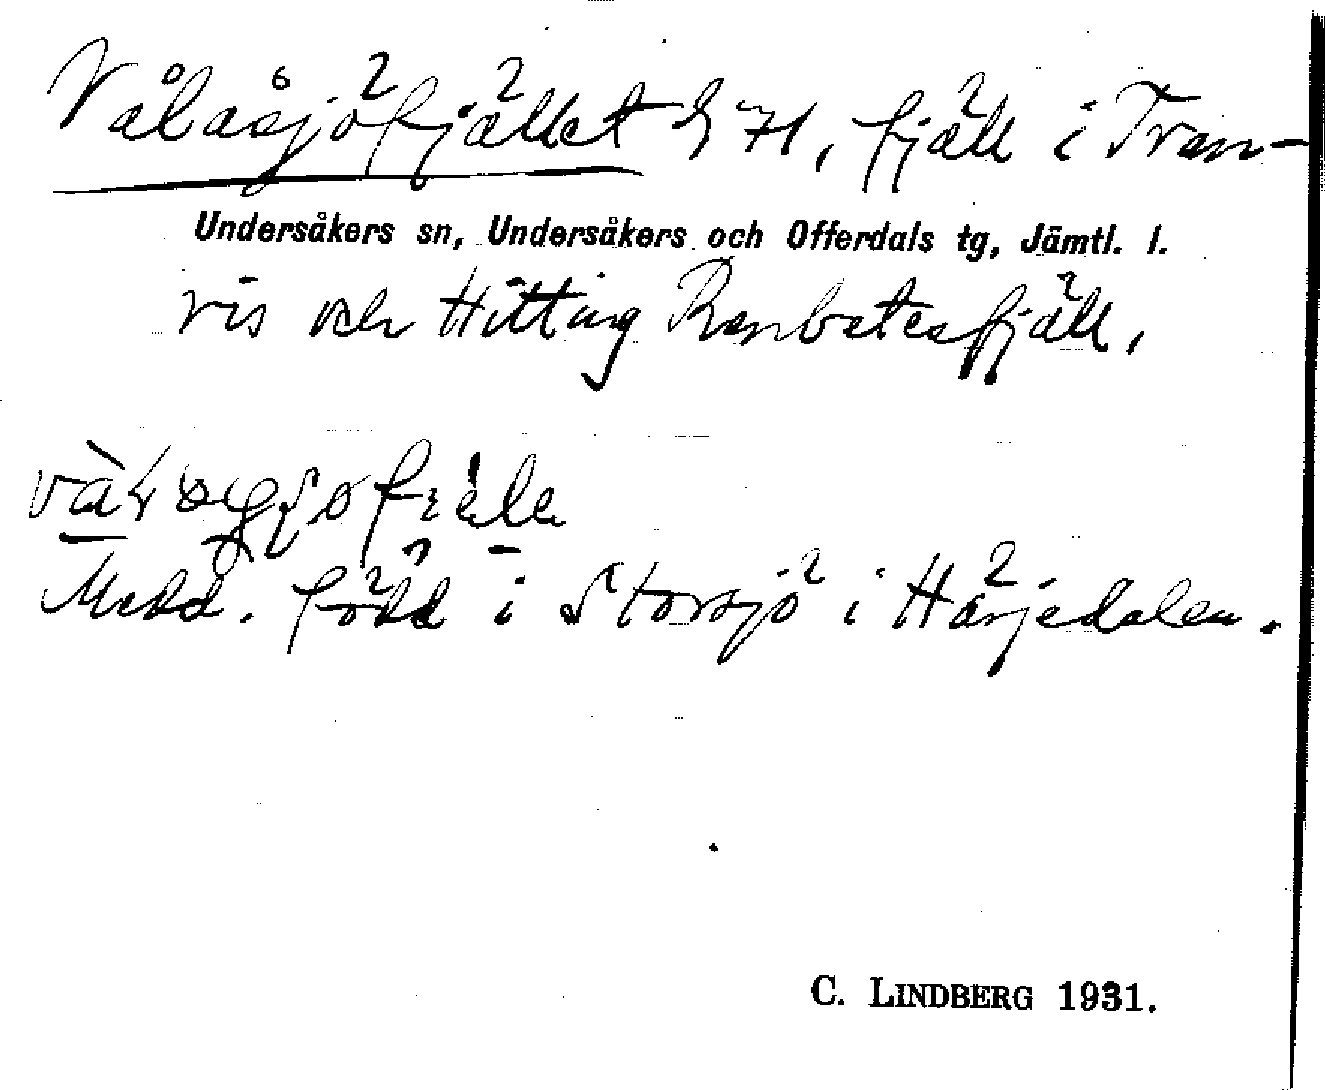 Vålåsjöfjället § 71, fjäll i Tran-
Undersåkers sn, Undersåkers och Offerdals tg, Jämtl. l.
ris och Hittäng Renbetesfjäll,
Medd. född i Storsjö i Härjedalen.
C. LINDBERG 1931.